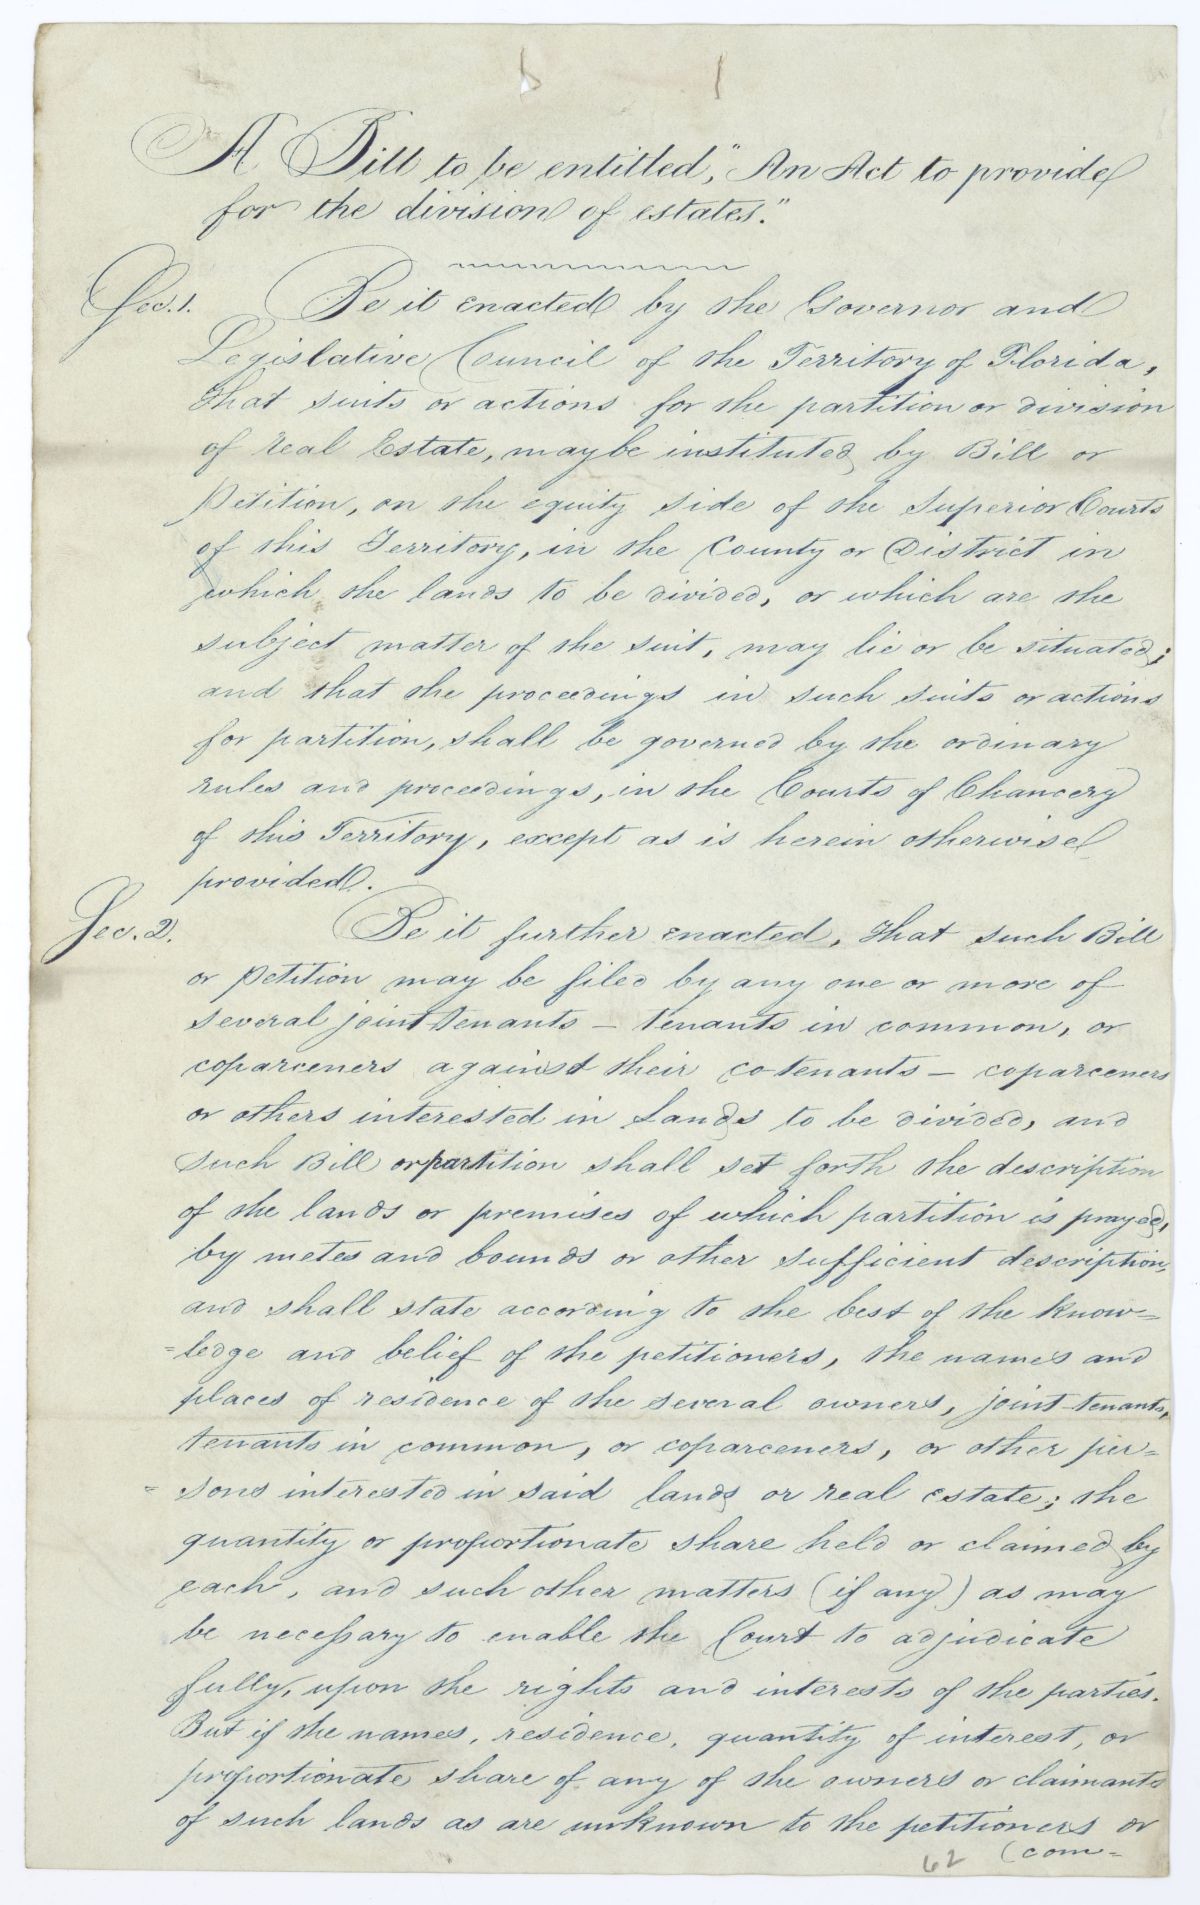 A Bill to be entitled, "An Act to provide
for the division of estates."
Sec. 1. Be it enacted by the Governor and
Legislative Council of the Territory of Florida,
that suits or actions for the partition or division
of real Estate, may be instituted by Bill or
Petition, on the equity side of the Superior Courts
of this Territory, in the County or District in
which the lands to be divided, or which are the
subject matter of the suit, may lie or be situated;
and that the proceedings in such suits or actions
for partition, shall be governed by the ordinary
rules and proceedings, in the Courts of Chancery
of this Territory, except as is herein otherwise
provided.
Sec. 2. Be it further enacted, that such Bill
or Petition may be filed by any one or more of
several joint tenants – tenants in common, or
coparceners against their co-tenants – coparceners
or others interested in Lands to be divided, and
such Bill or partition shall set forth the description
of the lands or premises of which partition is prayed,
by metes and bounds or other sufficient description,
and shall state according to the best of the know=
=ledge and belief of the petitioners, the names and
places of residence of the several owners, joint-tenants,
tenants in common, or coparceners, or other per=
=sons interested in said lands or real estate; the
quantity or proportionate share held or claimed by
each, and such other matters (if any) as may
be necessary to enable the Court to adjudicate
fully, upon the rights and interests of the parties.
But if the names, residence, quantity of interest, or
proportionate share of any of the owners or claimants
of such lands as are unknown to the petitioners or
(com=
62